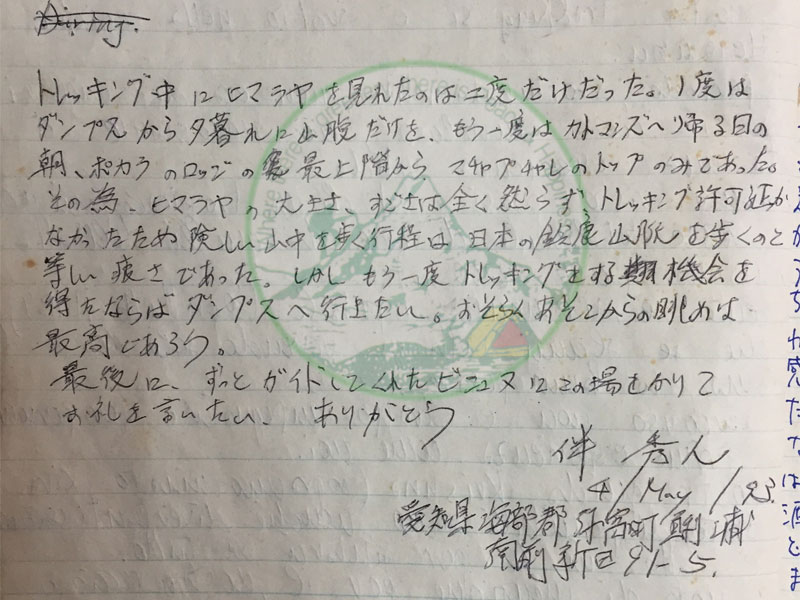 トレッキング中にヒマラヤを見れたのは二度だけだった。1度は
ダンプスから夕暮れに山腹だけを、もう一度はカトマンズへ帰る日の
朝、ポカラのロッジの最上階からマチャプチャレのトップのみであった。
その為、ヒマラヤの大きさ、すごさは全く然らずトレッキング許可証が
なかったため険しい山中を歩く行程は日本の鈴鹿山脈を歩くのと
等しい疲さであった。しかしもう一度トレッキングをする機会を
得たならばダンプスへ行きたい。おそらくあそこからの眺めは
最高であろう。
最後に、ずっとガイドしてくれたビシュヌにこの場をかりて
お礼を言いたい、ありがとう
伴 秀人
4/May/93.
愛知県海部郡弥富町鯏浦
前新田91-5.